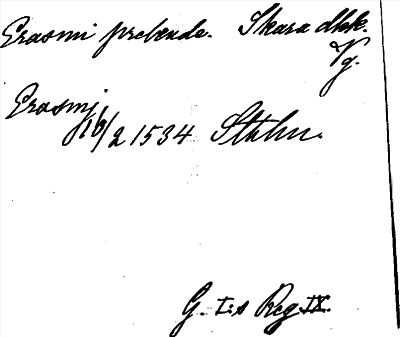 Erasmi prebende. Skara dkk.
Vg.
Erasmj
16/2 1534 Sthlm.
G. I:s Reg. IX.